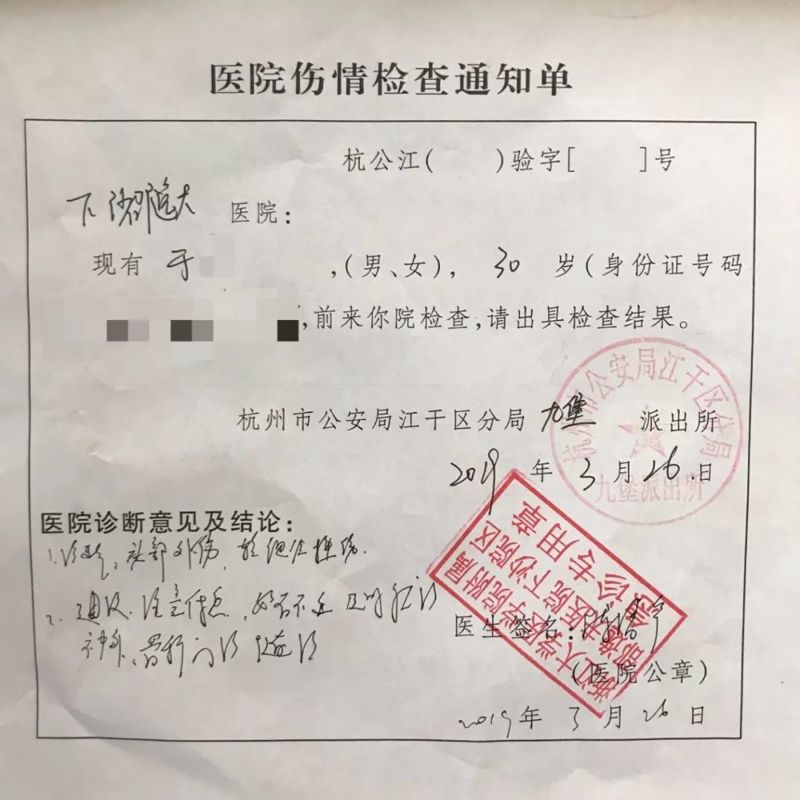 医院伤情检查通知单
杭公江( )验字[ ]号
下沙邵逸夫 医院:
现有 于 ,(男、女), 30 岁(身份证号码
,前来你院检查,请出具检查结果。
杭州市公安局江干区分局 九堡 派出所
2019 年 3 月 26 日
杭州市公安局江干区分局
九堡派出所
医院诊断意见及结论:
1. 诊断: 头部外伤, 软组织挫伤.
2. 建议. 注意休息,
神外、骨科门诊 随诊
浙江大学医学院附属
邵逸夫医院下沙院区
急诊专用章
医生签名:
(医院公章)
2019 年 3 月 26 日